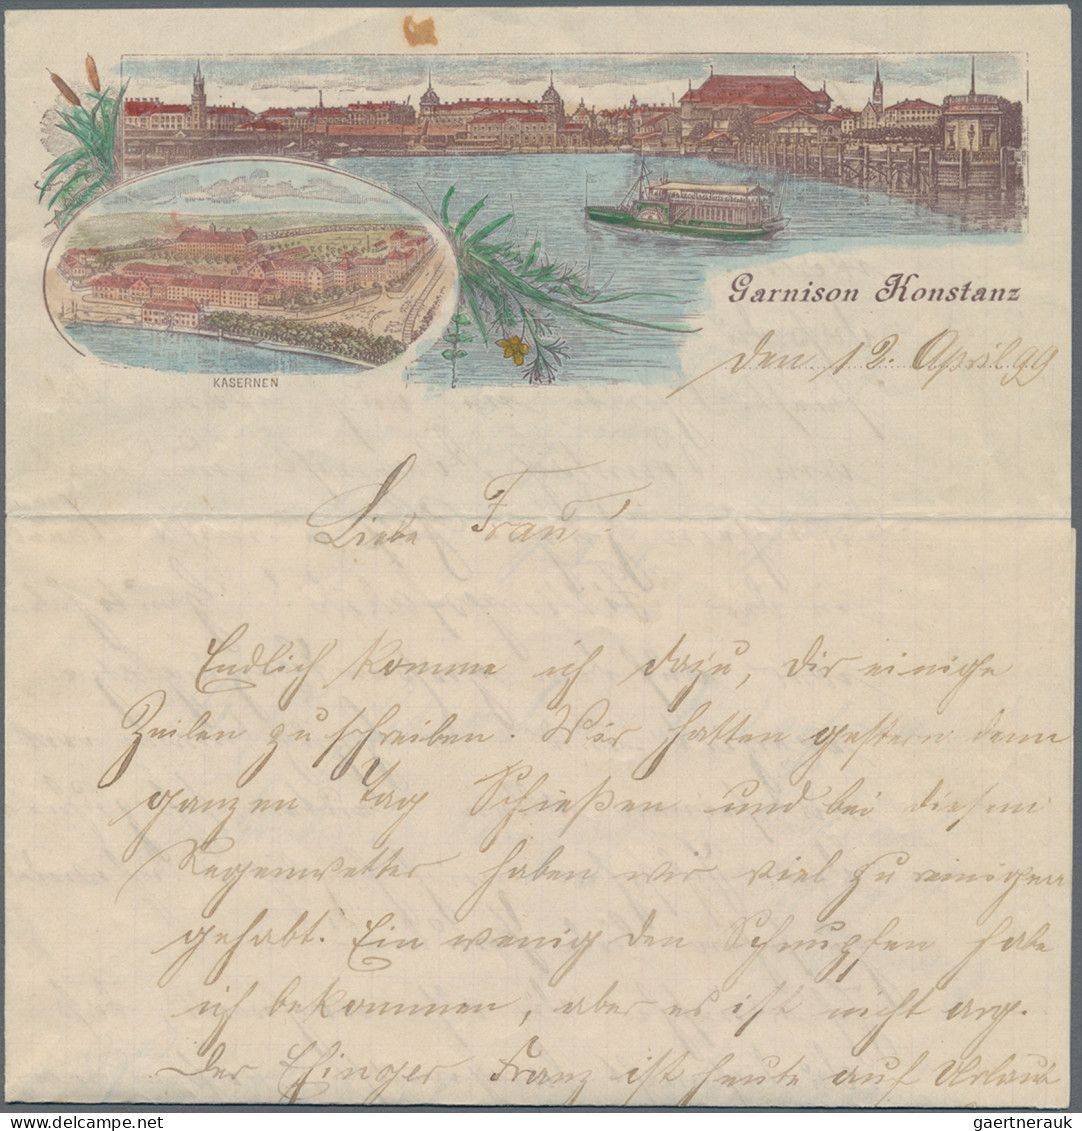 Garnison Konstanz
den 12. April 99
KASERNEN
Liebe Frau!
Endlich komme ich dazu, Dir einige
Zeilen zu schreiben. Wir hatten gestern denn
ganzen Tag Schießen und bei diesem
Regenwetter haben wir viel zu reinigen
gehabt. Ein wenig den Schnupfen habe
ich bekommen, aber es ist nicht arg.
Der Efinger Franz ist heute auf Urlaub
gaertnerauk